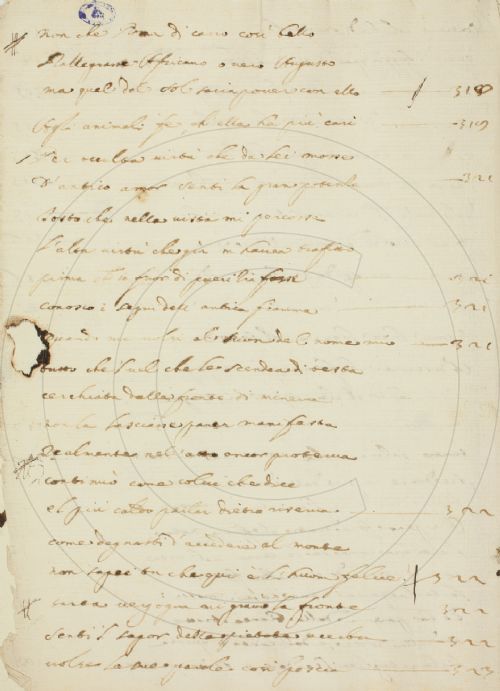 non che Roma di carro così bello
Rallegrasse Affricano o vero Augusto
ma quel del Sol saria pover con ello 319
Degli animali fe, ch'ella ha più cari 319
Per occulta virtù che da lei mosse
D'antico amor senti la gran potenza 321
Tosto che nella vista mi percosse
L'alta virtù che già m'havea trafitto
prima ch'io fuor di pueritia fosse 321
conosco i segni dell'antica fiamma 321
Quando mi volsi al suon del nome mio 321
tutto che l vel che le scendea di testa
cerchiata dalla fronde di minerva
non la lasciasse parer manifesta
Realmente nell'atto ancor proterva
continuò come colui che dice
el più caldo parlar dietro riserva 322
come degnasti d'accedere al monte
non sapei tu che qui è l'huom felice 322
tanta vergogna mi gravò la fronte 322
Senti l sapor della pietate acerba 322
volse le sue parole così poscia 323